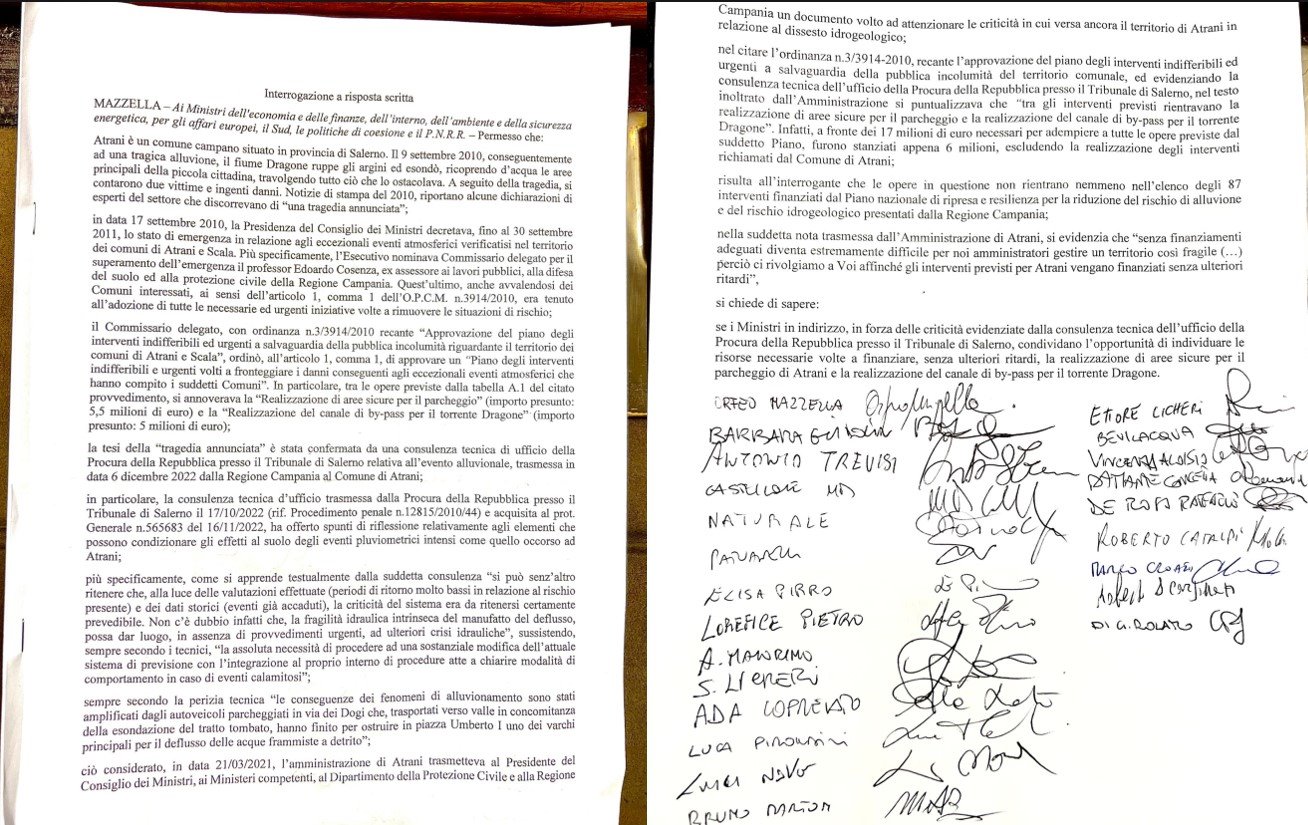 Interrogazione a risposta scritta
MAZZELLA – Ai Ministri dell'economia e delle finanze, dell'interno, dell'ambiente e della sicurezza
energetica, per gli affari europei, il Sud, le politiche di coesione e il P.N.R.R. – Permesso che:
Atrani è un comune campano situato in provincia di Salerno. Il 9 settembre 2010, conseguentemente
ad una tragica alluvione, il fiume Dragone ruppe gli argini ed esondò, ricoprendo d'acqua le aree
principali della piccola cittadina, travolgendo tutto ciò che lo ostacolava. A seguito della tragedia, si
contarono due vittime e ingenti danni. Notizie di stampa del 2010, riportano alcune dichiarazioni di
esperti del settore che discorrevano di “una tragedia annunciata”;
in data 17 settembre 2010, la Presidenza del Consiglio dei Ministri decretava, fino al 30 settembre
2011, lo stato di emergenza in relazione agli eccezionali eventi atmosferici verificatisi nel territorio
dei comuni di Atrani e Scala. Più specificamente, l'Esecutivo nominava Commissario delegato per il
superamento dell'emergenza il professor Edoardo Cosenza, ex assessore ai lavori pubblici, alla difesa
del suolo ed alla protezione civile della Regione Campania. Quest'ultimo, anche avvalendosi dei
Comuni interessati, ai sensi dell'articolo 1, comma 1 dell'O.P.C.M. n.3914/2010, era tenuto
all'adozione di tutte le necessarie ed urgenti iniziative volte a rimuovere le situazioni di rischio;
il Commissario delegato, con ordinanza n.3/3914/2010 recante “Approvazione del piano degli
interventi indifferibili ed urgenti a salvaguardia della pubblica incolumità riguardante il territorio dei
comuni di Atrani e Scala”, ordinò, all'articolo 1, comma 1, di approvare un “Piano degli interventi
indifferibili e urgenti volti a fronteggiare i danni conseguenti agli eccezionali eventi atmosferici che
hanno compito i suddetti Comuni”. In particolare, tra le opere previste dalla tabella A.1 del citato
provvedimento, si annoverava la “Realizzazione di aree sicure per il parcheggio” (importo presunto:
5,5 milioni di euro) e la “Realizzazione del canale di by-pass per il torrente Dragone” (importo
presunto: 5 milioni di euro);
la tesi della “tragedia annunciata” è stata confermata da una consulenza tecnica di ufficio della
Procura della Repubblica presso il Tribunale di Salerno relativa all'evento alluvionale, trasmessa in
data 6 dicembre 2022 dalla Regione Campania al Comune di Atrani;
in particolare, la consulenza tecnica d'ufficio trasmessa dalla Procura della Repubblica presso il
Tribunale di Salerno il 17/10/2022 (rif. Procedimento penale n.12815/2010/44) e acquisita al prot.
Generale n.565683 del 16/11/2022, ha offerto spunti di riflessione relativamente agli elementi che
possono condizionare gli effetti al suolo degli eventi pluviometrici intensi come quello occorso ad
Atrani;
più specificamente, come si apprende testualmente dalla suddetta consulenza “si può senz'altro
ritenere che, alla luce delle valutazioni effettuate (periodi di ritorno molto bassi in relazione al rischio
presente) e dei dati storici (eventi già accaduti), la criticità del sistema era da ritenersi certamente
prevedibile. Non c'è dubbio infatti che, la fragilità idraulica intrinseca del manufatto del deflusso,
possa dar luogo, in assenza di provvedimenti urgenti, ad ulteriori crisi idrauliche”, sussistendo,
sempre secondo i tecnici, “la assoluta necessità di procedere ad una sostanziale modifica dell'attuale
sistema di previsione con l'integrazione al proprio interno di procedure atte a chiarire modalità di
comportamento in caso di eventi calamitosi”;
sempre secondo la perizia tecnica “le conseguenze dei fenomeni di alluvionamento sono stati
amplificati dagli autoveicoli parcheggiati in via dei Dogi che, trasportati verso valle in concomitanza
della esondazione del tratto tombato, hanno finito per ostruire in piazza Umberto I uno dei varchi
principali per il deflusso delle acque frammiste a detrito”;
ciò considerato, in data 21/03/2021, l'amministrazione di Atrani trasmetteva al Presidente del
Consiglio dei Ministri, ai Ministeri competenti, al Dipartimento della Protezione Civile e alla Regione
Campania un documento volto ad attenzionare le criticità in cui versa ancora il territorio di Atrani in
relazione al dissesto idrogeologico;
nel citare l'ordinanza n.3/3914-2010, recante l'approvazione del piano degli interventi indifferibili ed
urgenti a salvaguardia della pubblica incolumità del territorio comunale, ed evidenziando la
consulenza tecnica dell'ufficio della Procura della Repubblica presso il Tribunale di Salerno, nel testo
inoltrato dall'Amministrazione si puntualizzava che “tra gli interventi previsti rientravano la
realizzazione di aree sicure per il parcheggio e la realizzazione del canale di by-pass per il torrente
Dragone”. Infatti, a fronte dei 17 milioni di euro necessari per adempiere a tutte le opere previste dal
suddetto Piano, furono stanziati appena 6 milioni, escludendo la realizzazione degli interventi
richiamati dal Comune di Atrani;
risulta all'interrogante che le opere in questione non rientrano nemmeno nell'elenco degli 87
interventi finanziati dal Piano nazionale di ripresa e resilienza per la riduzione del rischio di alluvione
e del rischio idrogeologico presentati dalla Regione Campania;
nella suddetta nota trasmessa dall'Amministrazione di Atrani, si evidenzia che “senza finanziamenti
adeguati diventa estremamente difficile per noi amministratori gestire un territorio così fragile (…)
perciò ci rivolgiamo a Voi affinché gli interventi previsti per Atrani vengano finanziati senza ulteriori
ritardi”,
si chiede di sapere:
se i Ministri in indirizzo, in forza delle criticità evidenziate dalla consulenza tecnica dell'ufficio della
Procura della Repubblica presso il Tribunale di Salerno, condividano l'opportunità di individuare le
risorse necessarie volte a finanziare, senza ulteriori ritardi, la realizzazione di aree sicure per il
parcheggio di Atrani e la realizzazione del canale di by-pass per il torrente Dragone.
ORFEO MAZZELLA
BARBARA GUIDOLIN
ANTONIO TREVISI
CASTELLONE
NATURALE
PATUANELLI
ELISA PIRRO
LOREFICE PIETRO
A. MAIORINO
S. LICHERI
ADA LOPREIATO
LUCA PIRONDINI
LUIGI NAVE
BRUNO MARTON
ETTORE LICHERI
BEVILACQUA
VINCENZA ALOISIO
DAMANTE CONCETTA
DE ROSA RAFFAELE
ROBERTO CATALDI
MARCO CROATTI
Roberto Scarpinato
DI GIROLAMO